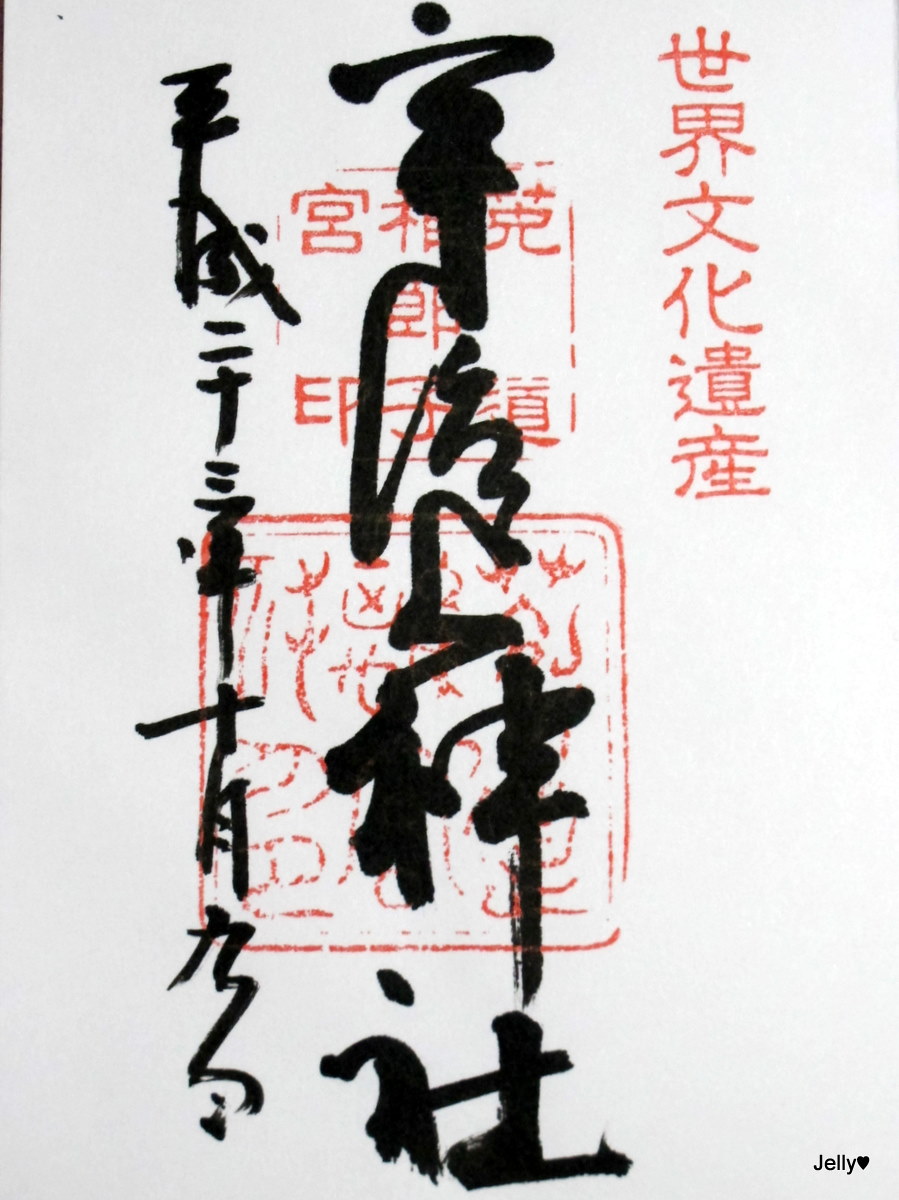 世界文化遺産
宇治上神社
菟道
稚郎子
宮印
平成二十三年十月九日
Jelly♥